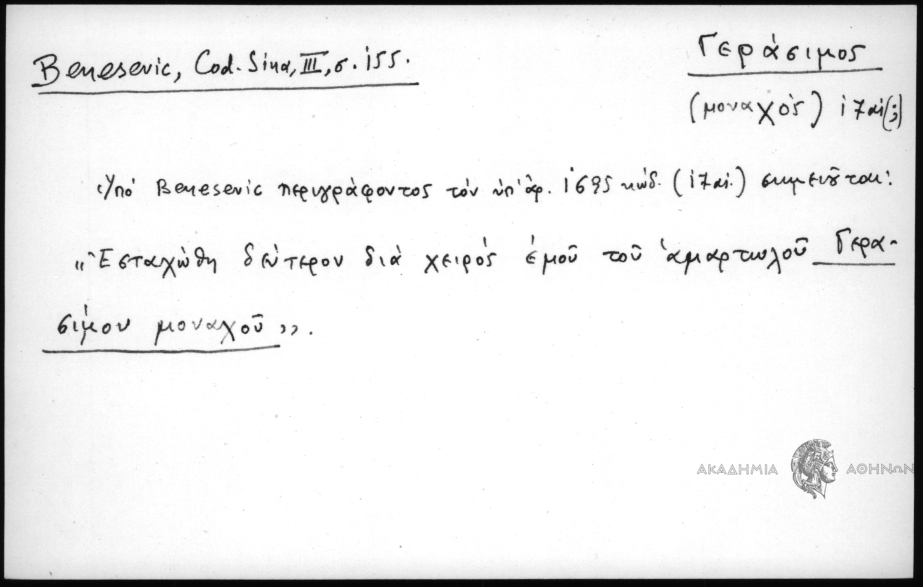 Benesevic, Cod. Sina, III, σ. 155.
Γεράσιμος
(μοναχός) 17αι(;)
Ὑπό Benesevic περιγράφοντος τόν ὑπ' ἀρ. 1695 κώδ. (17αι.) σημειοῦται:
„Ἐσταχώθη δεύτερον διά χειρός ἐμοῦ τοῦ ἁμαρτωλοῦ Γερα-
σίμου μοναχοῦ”.
ΑΚΑΔΗΜΙΑ ΑΘΗΝΩΝ